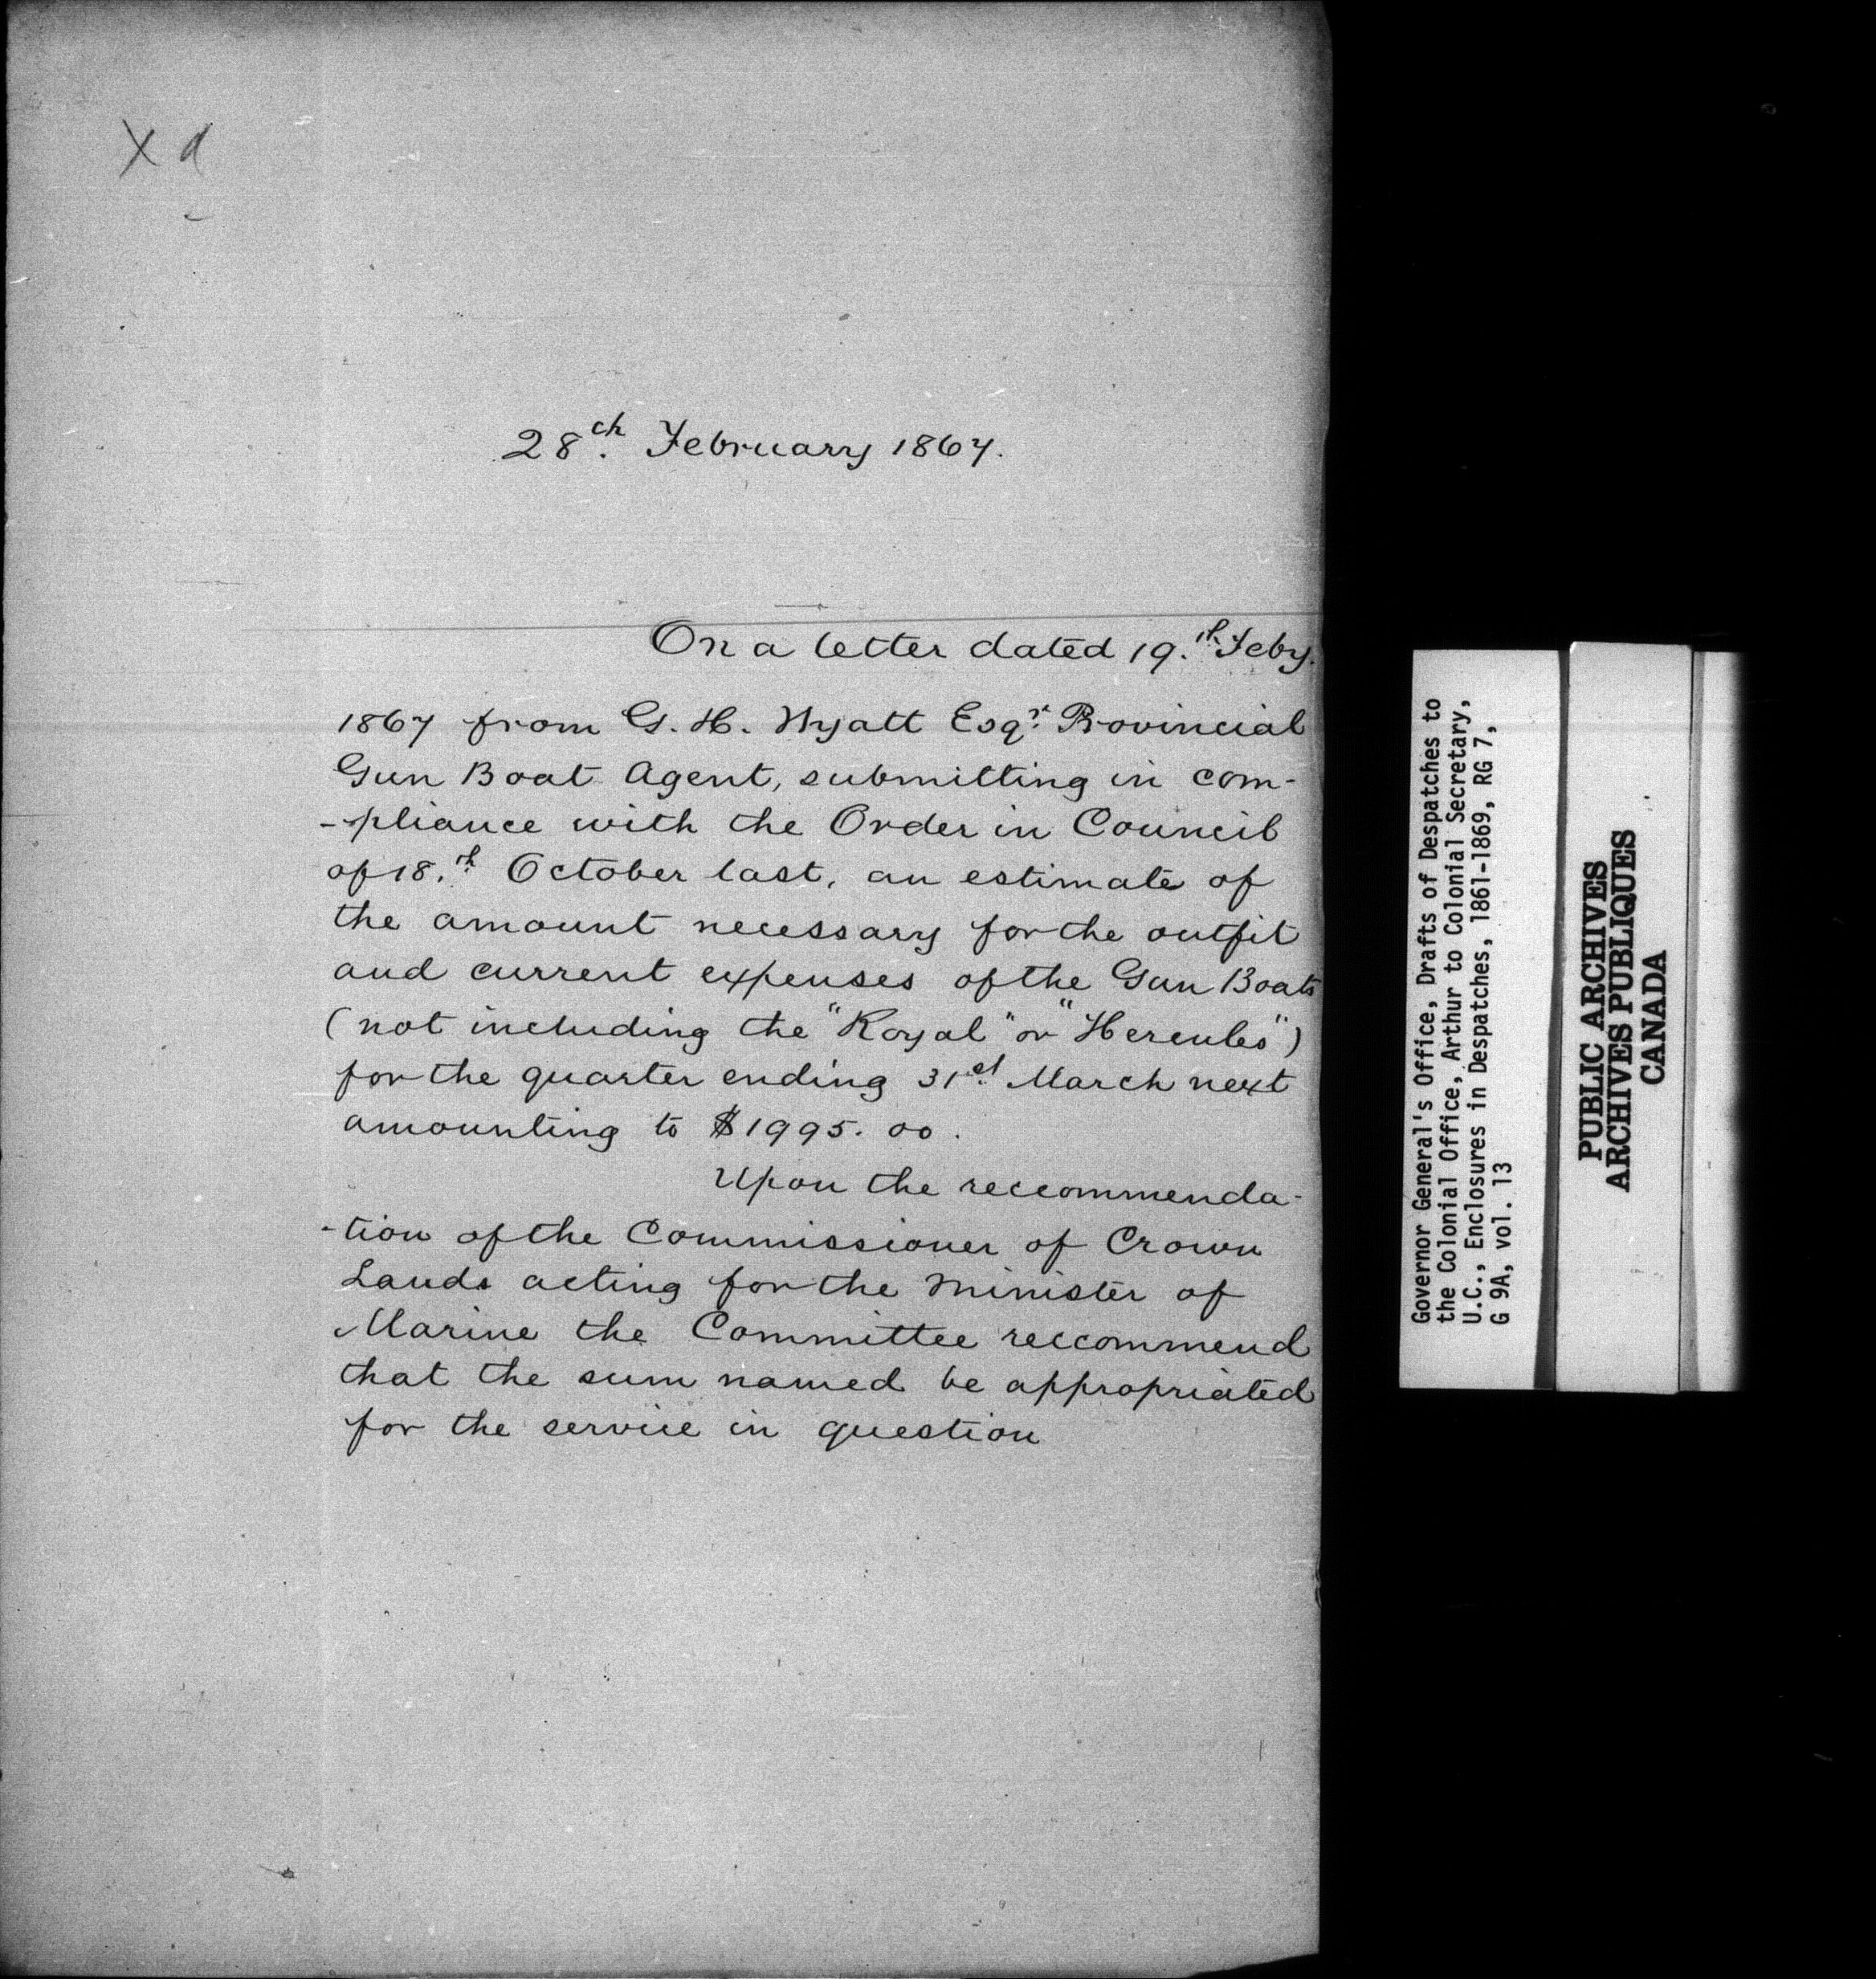 X d
28th. February 1867.
On a letter dated 19.th Feby.
1867 from G. H. Wyatt Esqr. Provincial
Gun Boat Agent, submitting in com-
-pliance with the Order in Council
of 18.th October last, an estimate of
the amount necessary for the outfit
and current expenses of the Gun Boats
(not including the "Royal" or "Hercules")
for the quarter ending 31st. March next
amounting to $1995.00.
Upon the reccommenda-
-tion of the Commissioner of Crown
Lands acting for the Minister of
Marine the Committee reccommend
that the sum named be appropriated
for the service in question
Governor General's Office, Drafts of Despatches to
the Colonial Office, Arthur to Colonial Secretary,
U.C., Enclosures in Despatches, 1861-1869, RG 7,
G 9A, vol. 13
PUBLIC ARCHIVES
ARCHIVES PUBLIQUES
CANADA